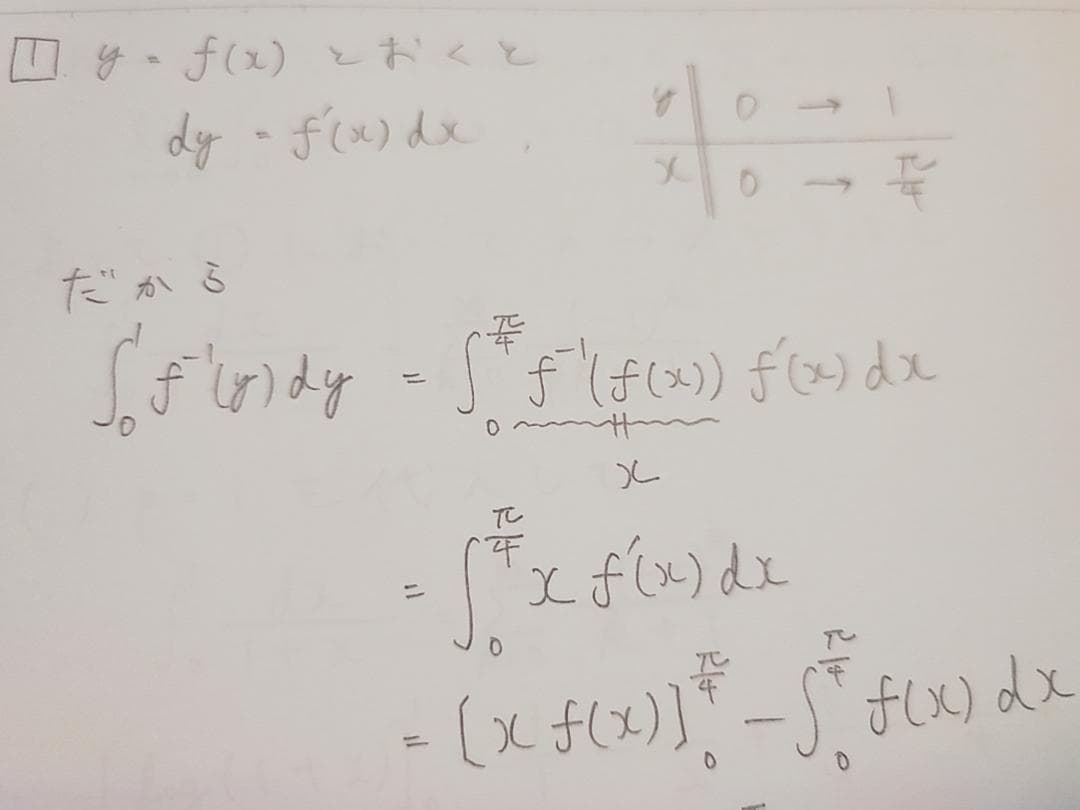 1. y = f(x) とおくと
dy = f'(x) dx .
y | 0 → 1
x | 0 → π/4
だから
∫₀¹ f⁻¹(y) dy = ∫₀^(π/4) f⁻¹(f(x)) f'(x) dx
x
= ∫₀^(π/4) x f'(x) dx
= [x f(x)]₀^(π/4) - ∫₀^(π/4) f(x) dx